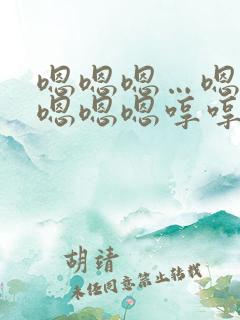 嗯嗯嗯…嗯
嗯嗯嗯哼哼
胡靖
未经同意禁止转载